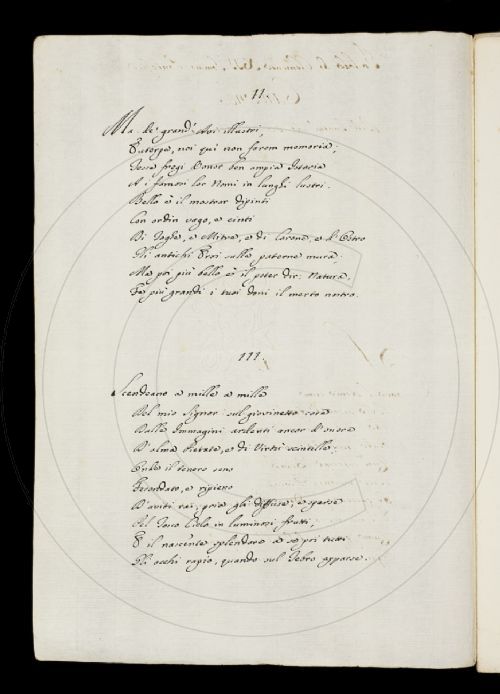 II.
Ma de' grand' Avi illustri,
Euterpe, noi qui non farem memoria;
Tesse fregi Danar ben ampia Istoria
A i famosi lor Nomi in lunghi lustri.
Bello è il mostrar dipinti
Con ordin vago, e cinti
Di Toghe, e Mitre, e di Corone, e d'Ostro
Gli antichi Eroi sulle paterne mura.
Ma poi più bello è il poter dir: Natura,
Fe più grandi i tuoi doni il merto nostro.
III.
Scendeano a mille a mille
Del mio Signor sul giovinetto core
Dalle Immagini ardenti ancor d'onore
D'alma Pietate, e di Virtù scintille:
Onde il tenero seno
Fecondato, e ripieno
D'aviti rai, poi gli diffuse, e sparse
Nel Tosco Cielo in luminosi frutti;
E il nascente splendore a se pria tutti
Gli occhi rapio, quando sul Tebro apparse.